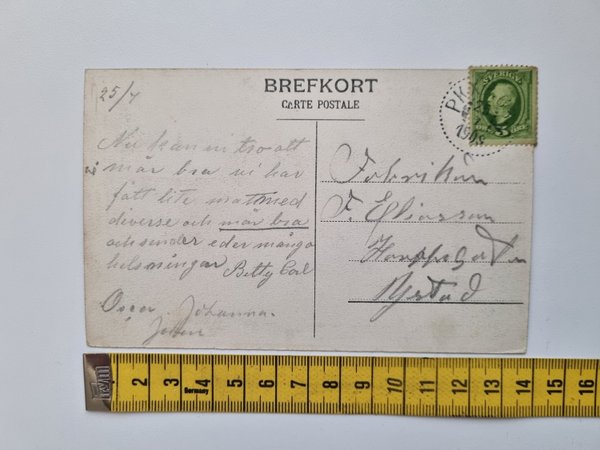 BREFKORT
CARTE POSTALE
25/4
Nu kan ni tro att
ni mår bra vi har
fått lite mat med
diverse och mår bra
och sender eder många
helsningar Betty Carl
Oscar Johanna
Fabrikör
F. Eliasson
Ystad
SVERIGE
5
PK
190
1 2 3 4 5 6 7 8 9 10 11 12 13 14 15 16
Germany